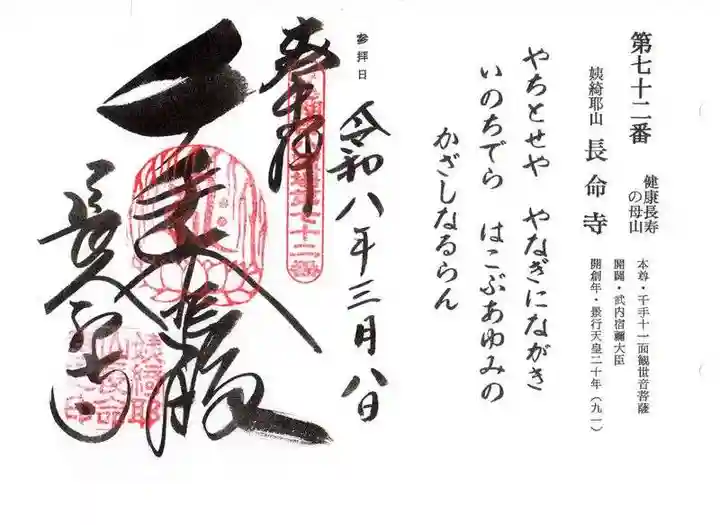 第七十二番
健康長寿
の母山
姨綺耶山 長命寺
本尊・千手十一面観世音菩薩
開闢・武内宿禰大臣
開創年・景行天皇二十年(九一)
やちとせや やなぎにながき
いのちでら はこぶあゆみの
かざしなるらん
参拝日
令和八年三月八日
奉拝
千手大悲殿
長命寺
姨綺耶
山長命
寺印